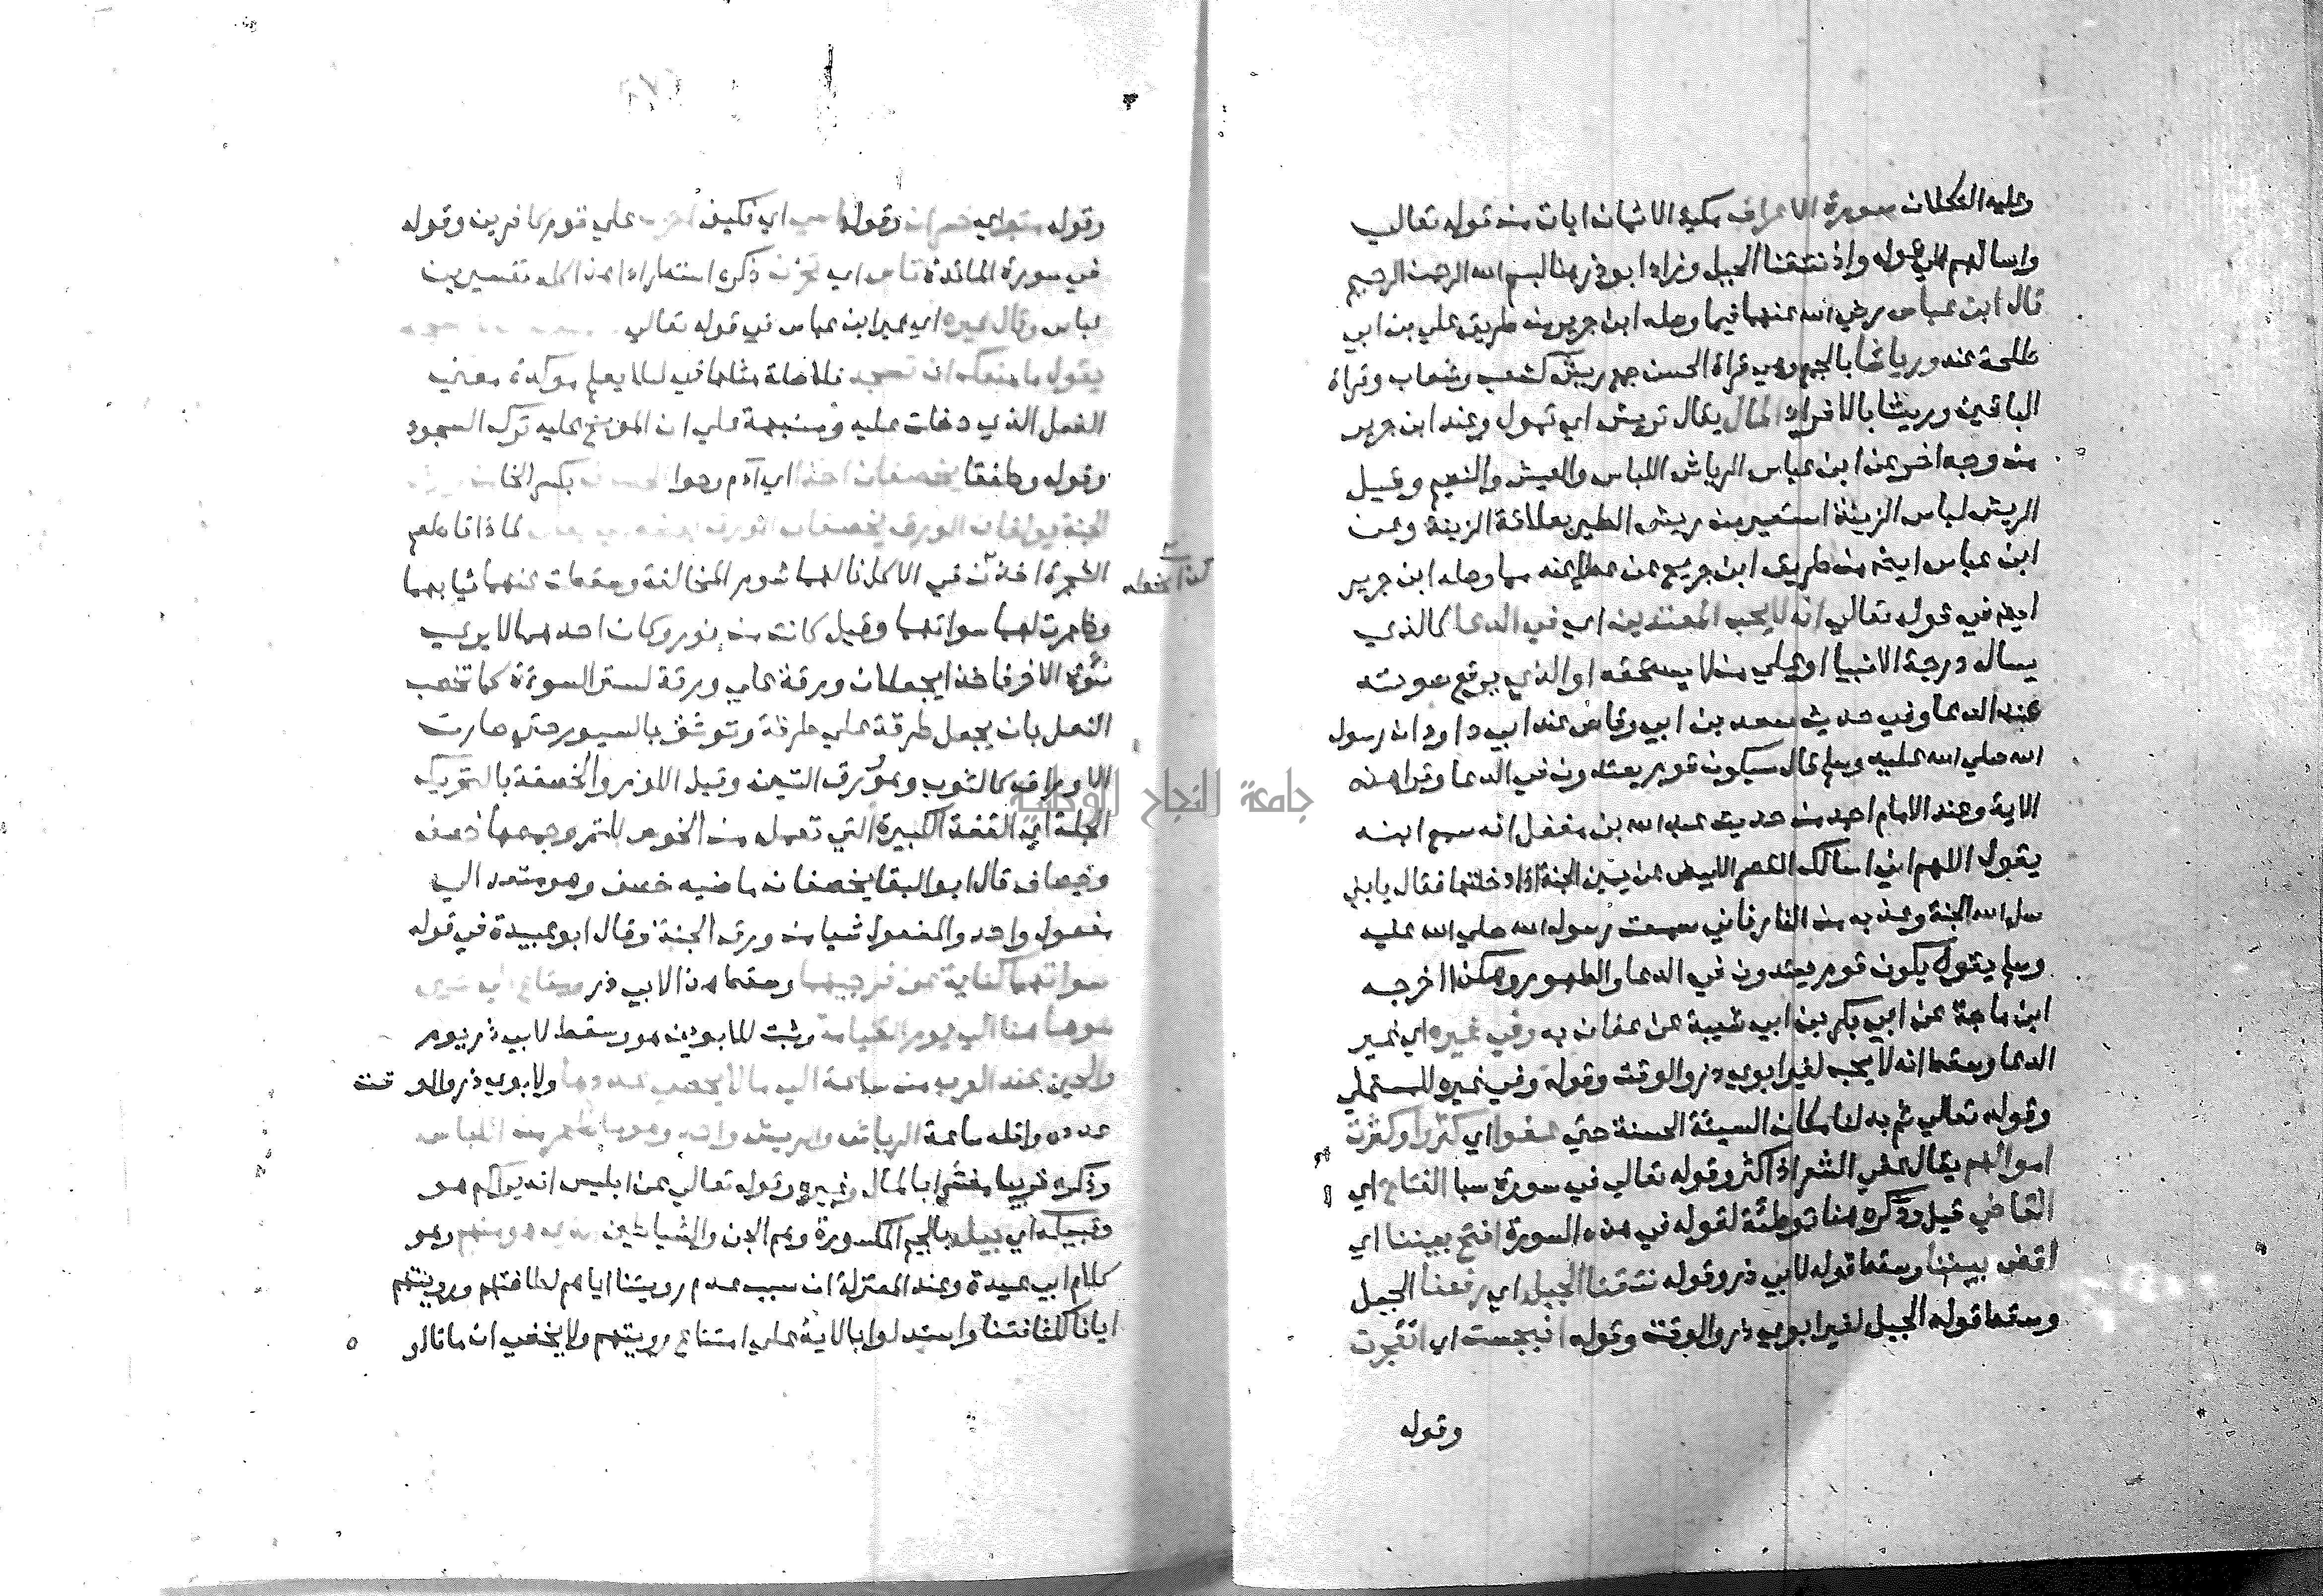 وعليه التكلان سورة الاعراف مكية الاثمان ايات من قوله تعالي
واسالهم الي قوله واذ نتقنا الجبل وزاد ابوذر هنا بسم الله الرحمن الرحيم
قال ابن عباس رضي الله عنهما فيما وصله ابن جرير من طريق علي بن ابي
طلحة عنه ورياشا بالجمع وهي قراة الحسن جمع ريش كشعب وشعاب وقراة
الباقين وريشا بالافراد المال يقال تريش اي تمول وعند ابن جرير
من وجه اخر عن ابن عباس الرياش اللباس والعيش والنعيم وقيل
الريش لباس الزينة استعير من ريش الطير بعلاقة الزينة وعن
ابن عباس ايضه من طريق ابن جريج عن عطا عنه مما وصله ابن جرير
ايضه في قوله تعالي انه لا يحب المعتدين اي في الدعا كالذي
يساله درجة الانبيا او علي من لا يستحقه او الذي يرفع صوته
عند الدعا وفي حديث سعد بن ابي وقاص عند ابي داود ان رسول
الله صلي الله عليه وسلم قال سيكون قوم يعتدون في الدعا وقرا هذه
الاية وعند الامام احمد من حديث عبد الله بن مغفل انه سمع ابنه
يقول اللهم اني اسالك القصر الابيض عن يمين الجنة اذا دخلتها فقال يا بني
سل الله الجنة وعذ به من النار فاني سمعت رسول الله صلي الله عليه
وسلم يقول يكون قوم يعتدون في الدعا والطهور وهكذا اخرجه
ابن ماجة عن ابي بكر بن ابي شيبة عن عفان به وفي غيره اي غير
الدعا وسقط انه لا يحب لغير ابوي ذر والوقت وقوله وفي غيره للمستملي
وقوله تعالي ثم بدلنا مكان السيئة الحسنة حتي عفوا اي كثروا وكثرت
اموالهم يقال عفي الشعر اذا كثر وقوله تعالي في سورة سبا الفتاح اي
القاضي قيل وذكره هنا توطئة لقوله في هذه السورة افتح بيننا اي
اقض بيننا وسقط قوله لابي ذر وقوله نتقنا الجبل اي رفعنا الجبل
وسقط قوله الجبل لغير ابوي ذر والوقت وقوله انبجست اي انفجرت
وقوله
وقوله متبر اي خسران وقوله اسي اي فكيف احزن علي قوم كافرين وقوله
في سورة المائدة تاس اي تحزن ذكره استطرادا
عباس وقال غيره اي غير ابن عباس في قوله تعالي
يقول ما منعك ان تسجد فلا صلة مثلها في لئلا يعلم موكدة معني
الفعل الذي دخلت عليه ومنبهة علي ان الموبخ عليه ترك السجود
وقوله وطفقا يخصفان اخذا اي آدم وحوا الخصاف بكسر الخا من ورق
الجنة يولفان الورق يخصفان الورق لما ذاقا طعم
الشجرة اخذين في الاكل نالهما شوم المخالفة وسقطت عنهما ثيابهما
وظهرت لهما سواتهما وقيل كانت من نور وكان احدهما لا يري
سوة الاخر فاخذا يجعلان ورقة علي ورقة لستر السوءة كما تخصف
النعل بان يجعل طرقة علي طرقة وتوثق بالسيور حتي صارت
الاوراق كالثوب وهو ورق التين وقيل اللوز والخصفة بالتحريك
الجلة اي القفة الكبيرة التي تعمل من الخوص للتمر وجمعها خصف
وخصاف قال ابو البقا يخصفان ماضيه خصف وهو متعد الي
مفعول واحد والمفعول شيا من ورق الجنة وقال ابو عبيدة في قوله
سواتهما كناية عن فرجيهما وسقط هذا لابي ذر ومتاع الي حين
هو هاهنا الي يوم القيامة وثبت للابوين هو وسقط لابي ذر يوم
والحين عند العرب من ساعة الي ما لا يحصي عددها ولابوي ذر والوقت
عدده واقله ساعة الرياش والريش واحد وهو ما ظهر من اللباس
وذكره قريبا مفسرا بالمال وغيره وقوله تعالي عن ابليس انه يراكم هو
وقبيله اي جيله بالجيم المكسورة وهم الجن والشياطين الذي هو منهم وهو
كلام ابي عبيدة وعند المعتزلة ان سبب عدم رويتنا اياهم لطافتهم ورويتهم
ايانا لكثافتنا واستدلوا بالاية علي امتناع رويتهم ولا يخفي ان ما قالو
جامعة النجاح الوطنية